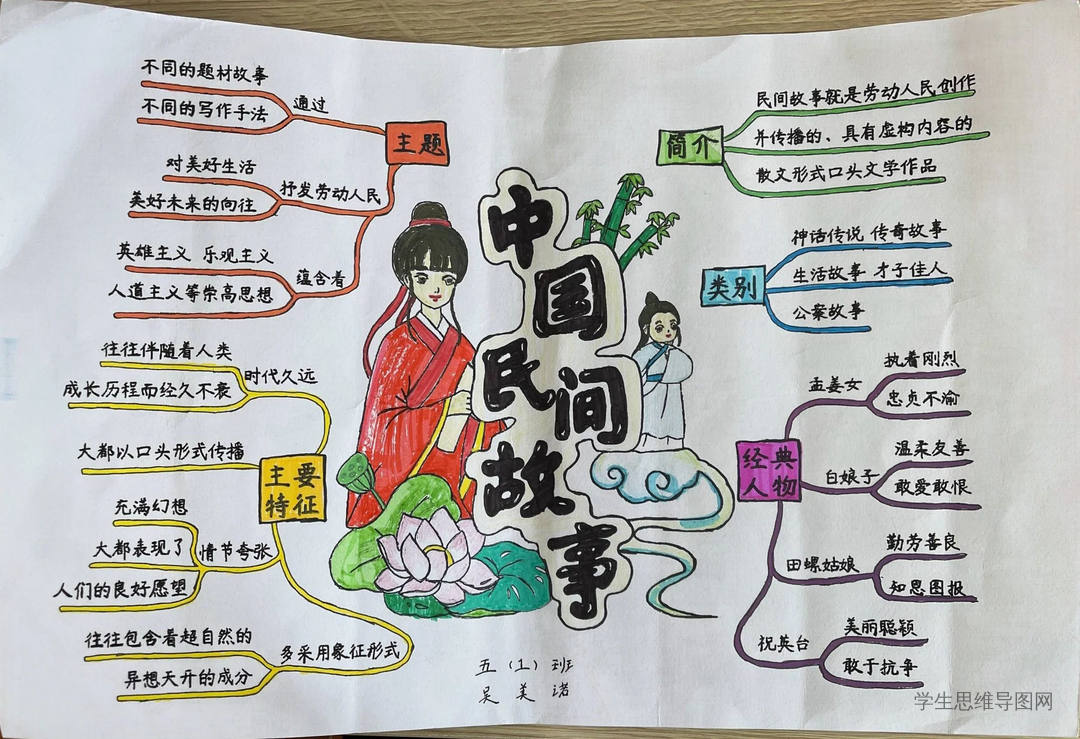 中国民间故事
主题
通过
不同的题材故事
不同的写作手法
抒发劳动人民
对美好生活
美好未来的向往
蕴含着
英雄主义 乐观主义
人道主义等崇高思想
主要
特征
时代久远
往往伴随着人类
成长历程而经久不衰
大都以口头形式传播
情节夸张
充满幻想
大都表现了
人们的良好愿望
多采用象征形式
往往包含着超自然的
异想天开的成分
简介
民间故事就是劳动人民创作
并传播的、具有虚构内容的
散文形式口头文学作品
类别
神话传说 传奇故事
生活故事 才子佳人
公案故事
经典
人物
孟姜女
执着刚烈
忠贞不渝
白娘子
温柔友善
敢爱敢恨
田螺姑娘
勤劳善良
知恩图报
祝英台
美丽聪颖
敢于抗争
五(1)班
吴美诺
学生思维导图网